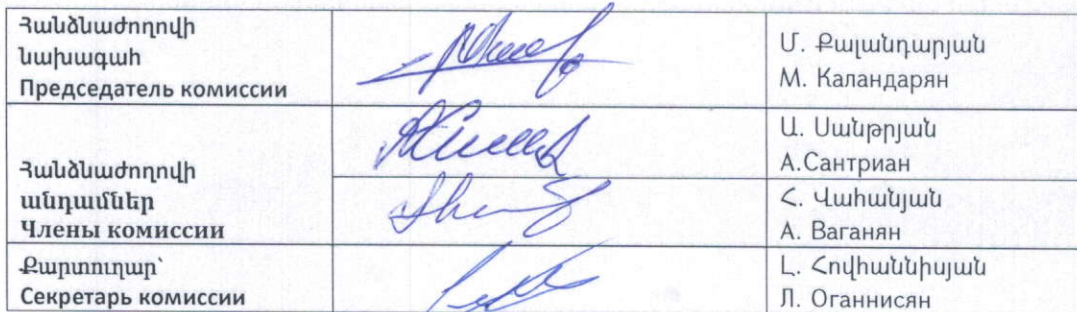 Հանձնաժողովի
նախագահ
Председатель комиссии
Մ. Քալանդարյան
М. Каландарян
Հանձնաժողովի
անդամներ
Члены комиссии
Ա. Սանթրյան
А.Сантриан
Հ. Վահանյան
А. Ваганян
Քարտուղար՝
Секретарь комиссии
Լ. Հովհաննիսյան
Л. Оганнисян